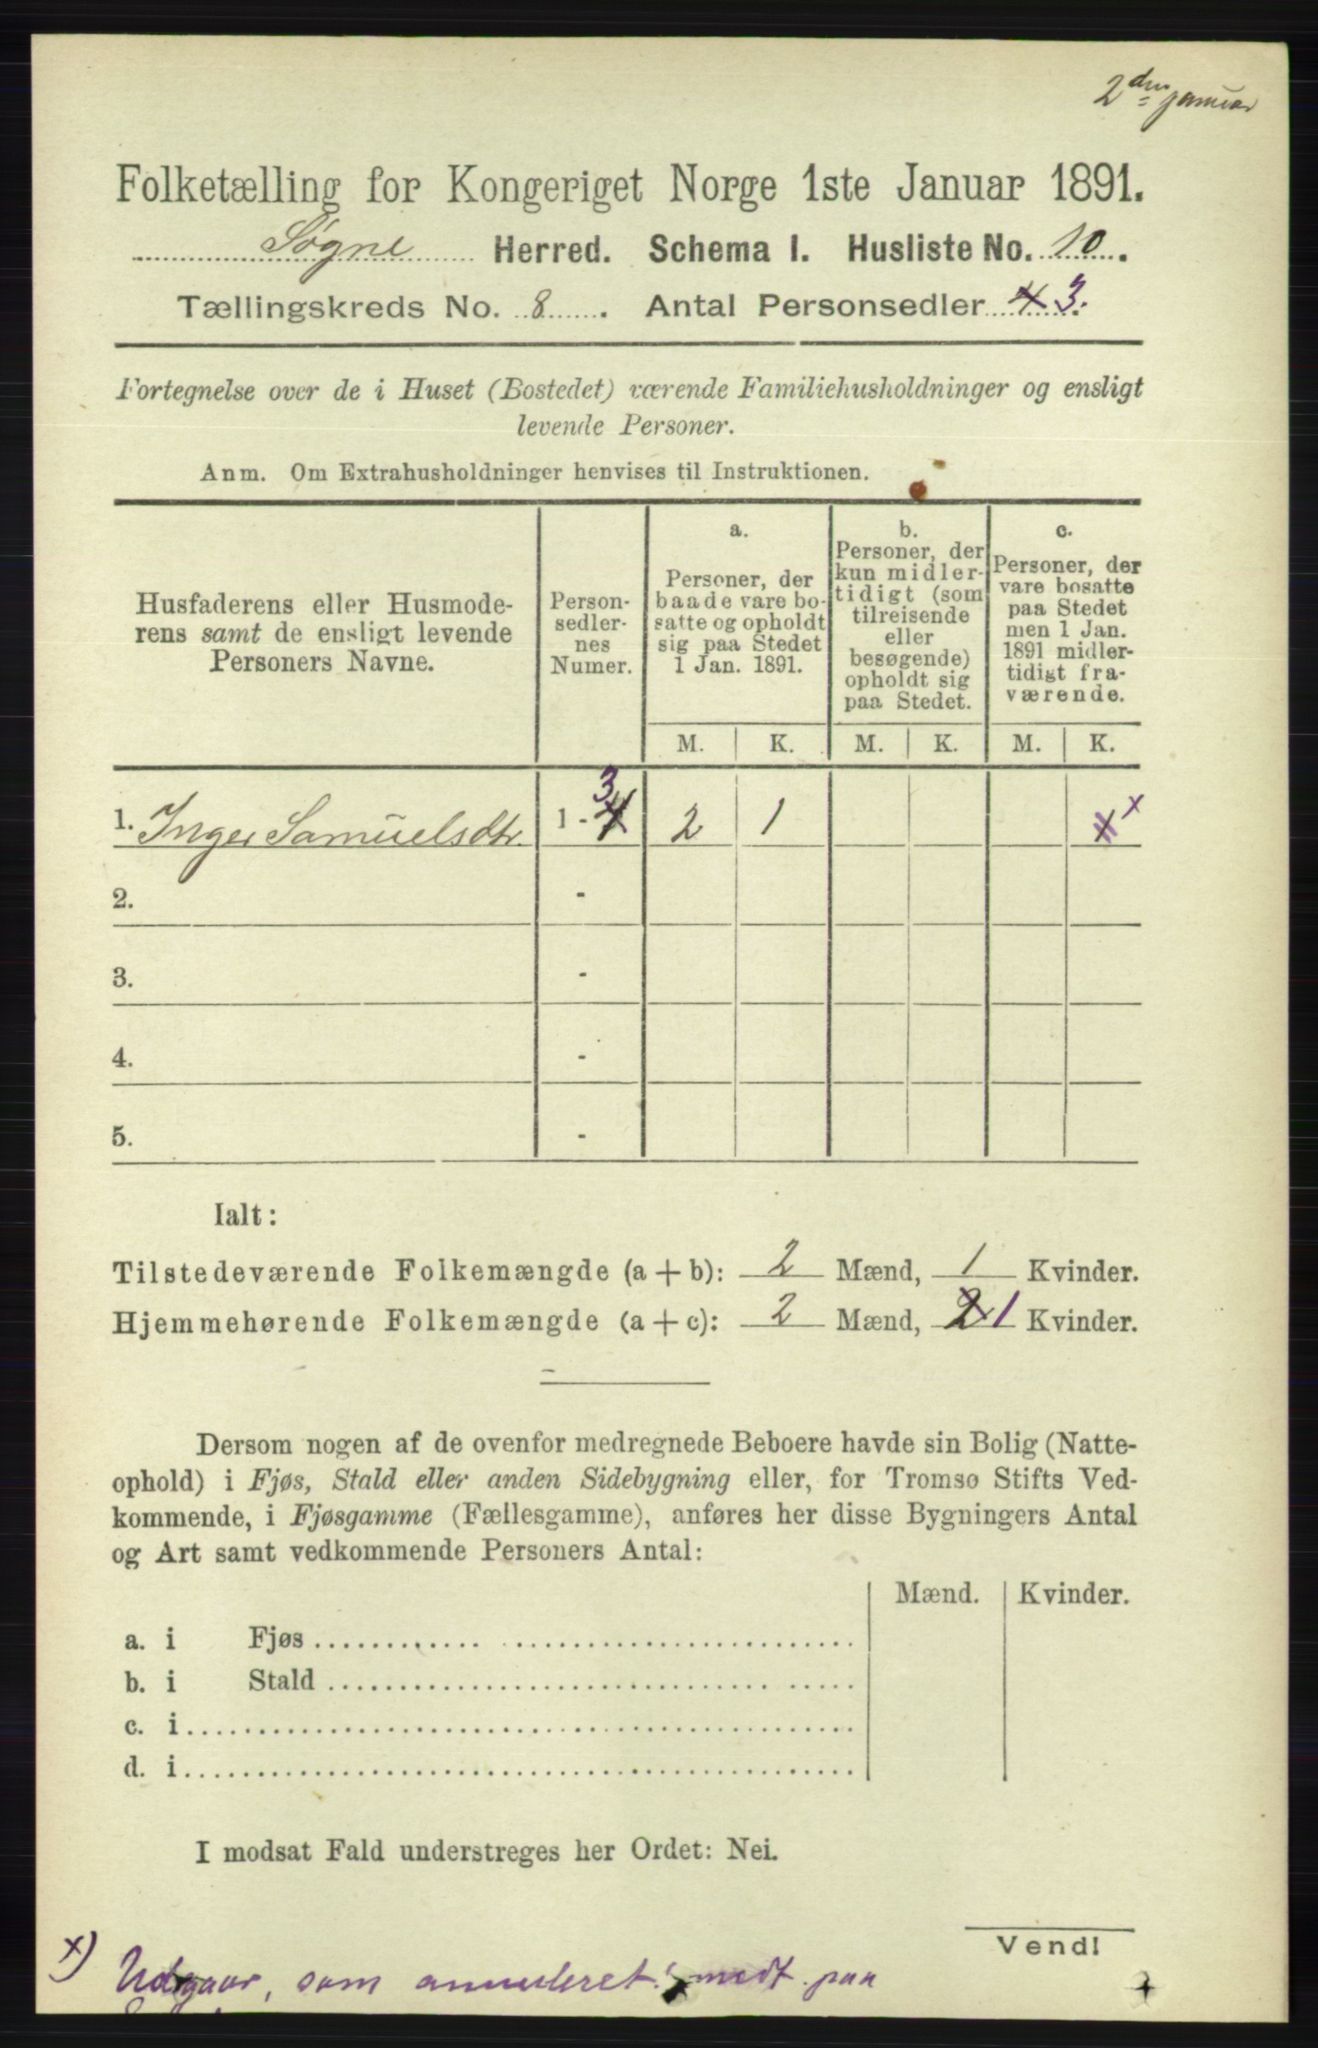 2den januar
Folketælling for Kongeriget Norge 1ste Januar 1891.
Søgne Herred. Schema I. Husliste No. 10.
Tællingskreds No. 8. Antal Personsedler 4 3.
Fortegnelse over de i Huset (Bostedet) værende Familiehusholdninger og ensligt
levende Personer.
Anm. Om Extrahusholdninger henvises til Instruktionen.
Husfaderens eller Husmode-
rens samt de ensligt levende
Personers Navne.
Person-
sedler-
nes
Numer.
a.
Personer, der
baade vare bo-
satte og opholdt
sig paa Stedet
1 Jan. 1891.
b.
Personer, der
kun midler-
tidigt (som
tilreisende
eller
besøgende)
opholdt sig
paa Stedet.
c.
Personer, der
vare bosatte
paa Stedet
men 1 Jan.
1891 midler-
tidigt fra-
værende.
M. K. M. K. M. K.
1. Inger Samuelsdtr. 1 - 4 3 2 1 1 x
2. -
3. -
4. -
5. -
Ialt:
Tilstedeværende Folkemængde (a + b): 2 Mænd, 1 Kvinder.
Hjemmehørende Folkemængde (a + c): 2 Mænd, 2 1 Kvinder.
Dersom nogen af de ovenfor medregnede Beboere havde sin Bolig (Natte-
ophold) i Fjøs, Stald eller anden Sidebygning eller, for Tromsø Stifts Ved-
kommende, i Fjøsgamme (Fællesgamme), anføres her disse Bygningers Antal
og Art samt vedkommende Personers Antal:
Mænd. Kvinder.
a. i Fjøs
b. i Stald
c. i
d. i
I modsat Fald understreges her Ordet: Nei.
Vend!
x) Udgaar, som annuleret! medt. paa